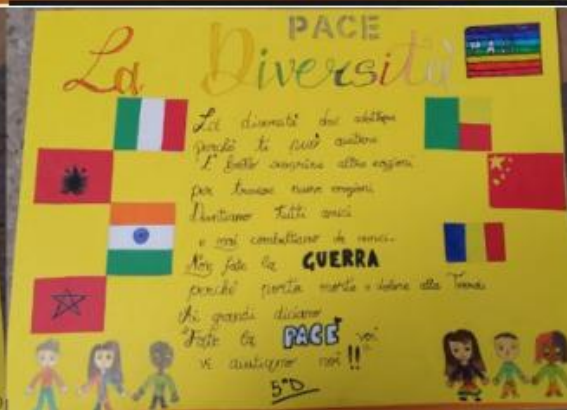 PACE
La Diversità
PACE
La diversità
perché ti può
È bello scoprire altre
per trovare nuove emozioni
Diventiamo tutti amici
e mai combattiamo da nemici.
Non fate la GUERRA
perché porta morte e dolore alla
Ai grandi diciamo
"Fate la PACE voi
vi aiutiamo noi!!"
5°D